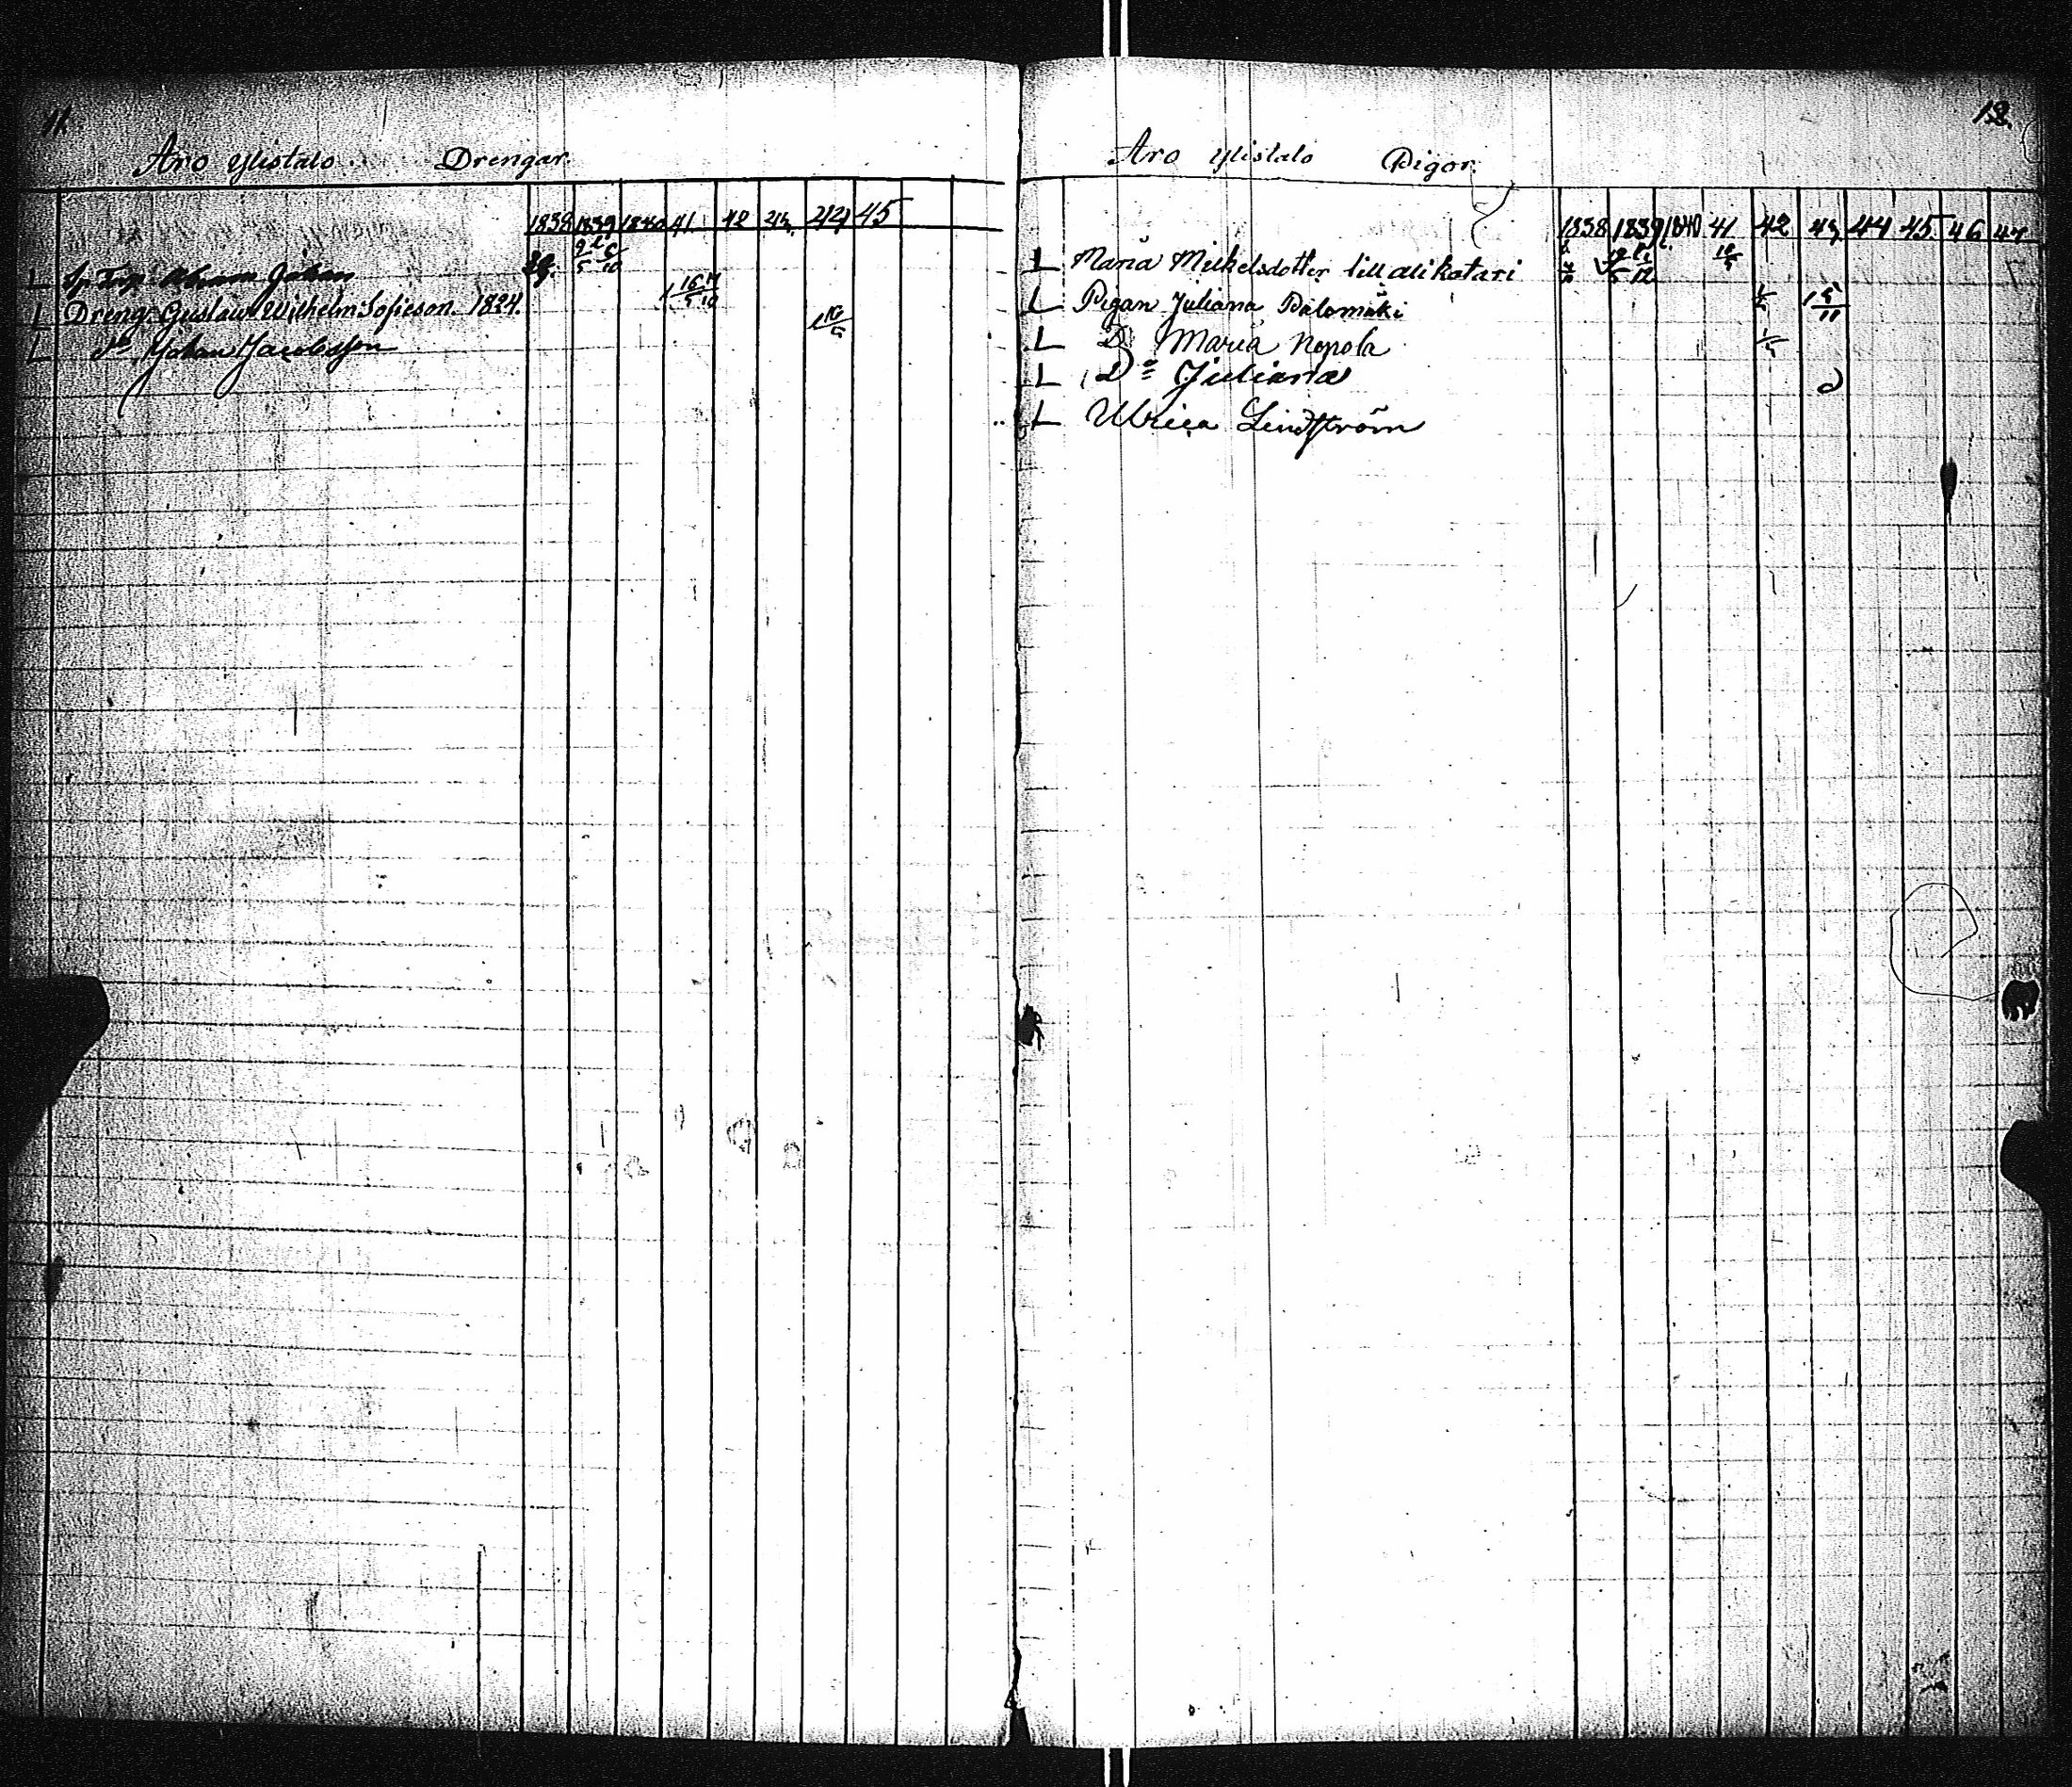 11.
Aro Ylistalo. Drengar.
1838 1839 1840 41 42 43 44 45
L Abram Johan 9/5 6/10
L Dreng. Gustaw Wilhelm Sofieson. 1824.
L Do Johan Jacobsson
12.
Aro Ylistalo Pigor.
1838 1839 1840 41 42 43 44 45 46 47
L Maria Mickelsdotter till alikatari
L Pigan Juliana Palomäki
L D Maria Nopola
L Do Juliana
L Ulrica Lindström